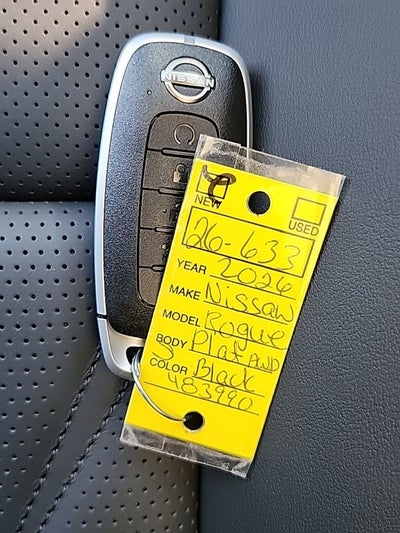 NISSAN
NEW
USED
26-633
YEAR 2026
MAKE Nissan
MODEL Rogue
BODY Plat AWD
COLOR Black
483990